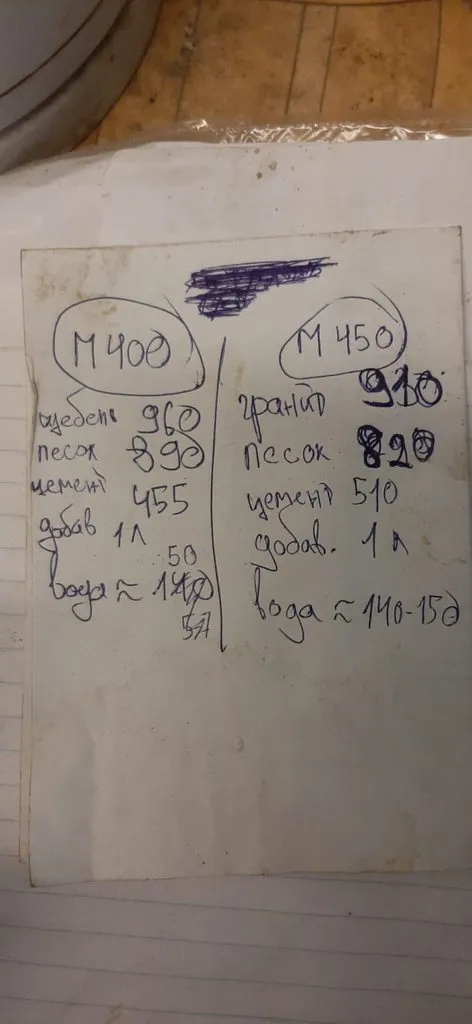 М 400
щебень 960
песок 890
цемент 455
добав 1 л
50
вода ≈ 140
М 450
гранит 910
песок 820
цемент 510
добав. 1 л
вода ≈ 140-150